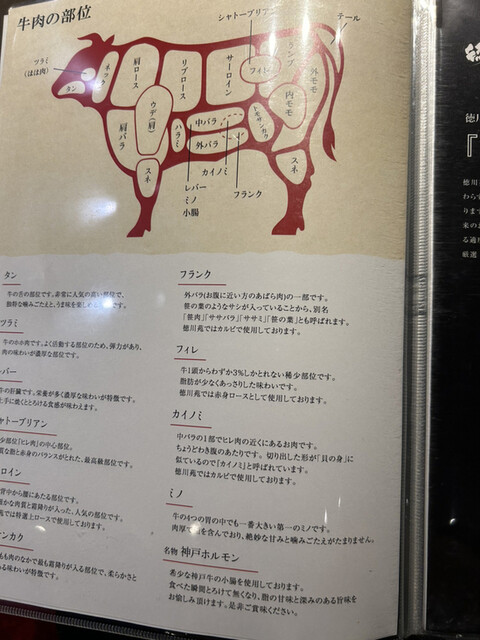 牛肉の部位
シャトーブリアン
テール
ツラミ
(ほほ肉)
タン
ネック
肩ロース
リブロース
サーロイン
フィレ
ランプ
外モモ
内モモ
トモサンカク
ウデ(肩)
肩バラ
ハラミ
中バラ
外バラ
スネ
スネ
カイノミ
フランク
レバー
ミノ
小腸
タン
牛の舌の部位です。非常に人気の高い部位で、
独特な噛みごたえと、うま味を楽しめ
ツラミ
牛のホホ肉です。よく活動する部位のため、弾力があり、
肉の味わいが濃厚な部位です。
バー
牛の肝臓です。栄養が多く濃厚な味わいが特徴です。
上手に焼くととろける食感が味わえます。
ャトーブリアン
少部位「ヒレ肉」の中心部位。
質な脂と赤身のバランスがとれた、最高級部位です。
ロイン
背中から腰にあたる部位です。
かな肉質と霜降りが入った、人気の部位です。
苑では特選上ロースで使用しております。
ンカク
もも肉のなかで最も霜降りが入る部位で、柔らかさと
る味わいが特徴です。
フランク
外バラ(お腹に近い方のあばら肉)の一部です。
笹の葉のようなサシが入っていることから、別名
「笹肉」「ササバラ」「ササミ」「笹の葉」とも呼ばれます。
徳川苑ではカルビで使用しております。
フィレ
牛1頭からわずか3%しかとれない稀少部位です。
脂肪が少なくあっさりした味わいです。
徳川苑では赤身ロースとして使用しております。
カイノミ
中バラの1部でヒレ肉の近くにあるお肉です。
ちょうどわき腹のあたりです。切り出した形が「貝の身」に
似ているので「カイノミ」と呼ばれています。
徳川苑ではカルビで使用しております。
ミノ
牛の4つの胃の中でも一番大きい第一のミノです。
肉厚で を含んでおり、絶妙な甘みと噛みごたえがたまりません。
名物 神戸ホルモン
希少な神戸牛の小腸を使用しております。
食べた瞬間とろけて無くなり、脂の甘味と深みのある旨味を
お愉しみ頂けます。是非ご賞味ください。
徳川
『
徳川
わらず
りまで
来のお
る通
厳選